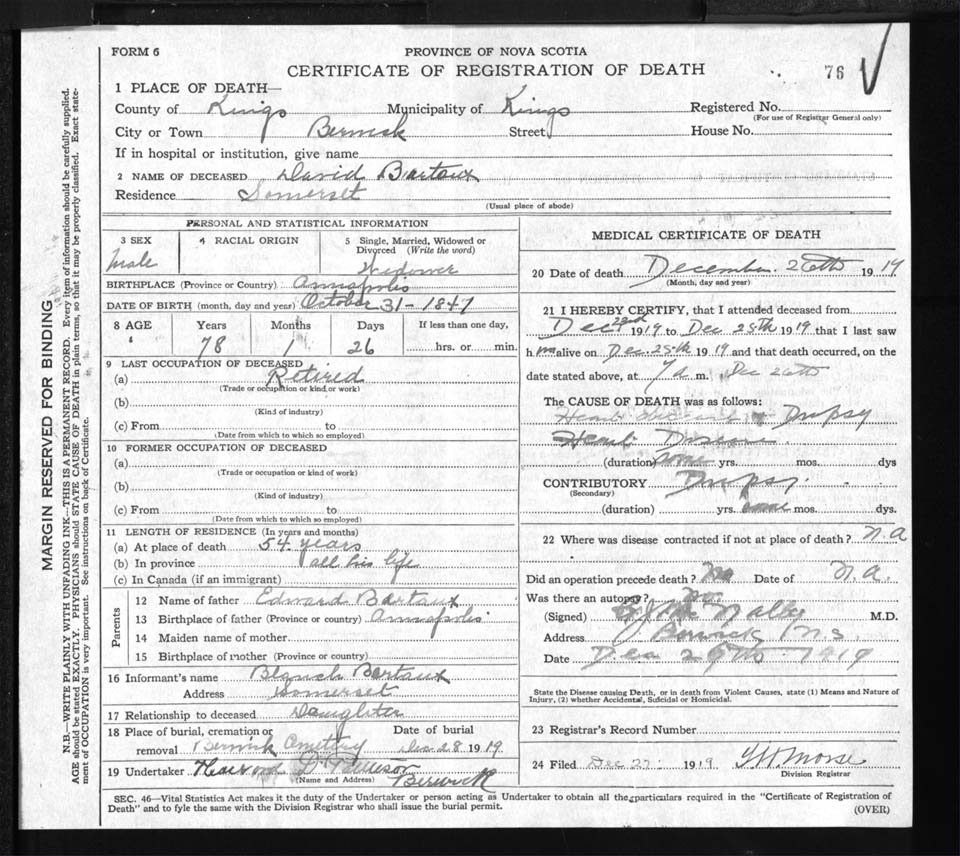 FORM 6
PROVINCE OF NOVA SCOTIA
CERTIFICATE OF REGISTRATION OF DEATH
76
1 PLACE OF DEATH—
County of Kings Municipality of Kings Registered No.
(For use of Registrar General only)
City or Town Berwick Street House No.
If in hospital or institution, give name
2 NAME OF DECEASED David Bartaux
Residence Somerset
(Usual place of abode)
PERSONAL AND STATISTICAL INFORMATION
3 SEX
Male
4 RACIAL ORIGIN
5 Single, Married, Widowed or
Divorced (Write the word)
Widower
BIRTHPLACE (Province or Country) Annapolis
DATE OF BIRTH (month, day and year) October 31-1841
8 AGE Years Months Days If less than one day,
78 1 26 hrs. or min.
9 LAST OCCUPATION OF DECEASED
(a) Retired
(Trade or occupation or kind or work)
(b)
(Kind of industry)
(c) From to
(Date from which to which so employed)
10 FORMER OCCUPATION OF DECEASED
(a)
(Trade or occupation or kind of work)
(b)
(Kind of industry)
(c) From to
(Date from which to which so employed)
11 LENGTH OF RESIDENCE (In years and months)
(a) At place of death 54 years
(b) In province all his life
(c) In Canada (if an immigrant)
Parents
12 Name of father Edward Bartaux
13 Birthplace of father (Province or country) Annapolis
14 Maiden name of mother
15 Birthplace of mother (Province or country)
16 Informant's name Blanch Bartaux
Address Somerset
17 Relationship to deceased Daughter
18 Place of burial, cremation or Date of burial
removal Berwick Cemetery Dec 28 1919
19 Undertaker
(Name and Address) Berwick
MEDICAL CERTIFICATE OF DEATH
20 Date of death December 26th 1919
(Month, day and year)
21 I HEREBY CERTIFY, that I attended deceased from
Dec 23rd 1919 to Dec 25th 1919 that I last saw
him alive on Dec. 25th 1919 and that death occurred, on the
date stated above, at 7 a m. Dec 26th
The CAUSE OF DEATH was as follows:
Dropsy
Heart Disease
(duration) some yrs. mos. dys
CONTRIBUTORY Dropsy
(Secondary)
(duration) yrs. some mos. dys.
22 Where was disease contracted if not at place of death? N.A
Did an operation precede death? No Date of N.A.
Was there an autopsy? No
(Signed) M.D.
Address Berwick N.S.
Date Dec 26th 1919
State the Disease causing Death, or in death from Violent Causes, state (1) Means and Nature of
Injury, (2) whether Accidental, Suicidal or Homicidal.
23 Registrar's Record Number
24 Filed Dec 27 1919 Morse
Division Registrar
SEC. 46—Vital Statistics Act makes it the duty of the Undertaker or person acting as Undertaker to obtain all the particulars required in the "Certificate of Registration of
Death" and to fyle the same with the Division Registrar who shall issue the burial permit.
(OVER)
MARGIN RESERVED FOR BINDING
N.B.—WRITE PLAINLY WITH UNFADING INK—THIS IS A PERMANENT RECORD. Every item of information should be carefully supplied.
AGE should be stated EXACTLY. PHYSICIANS should STATE CAUSE OF DEATH in plain terms, so that it may be properly classified. Exact state-
ment of OCCUPATION is very important. See instructions on back of Certificate.